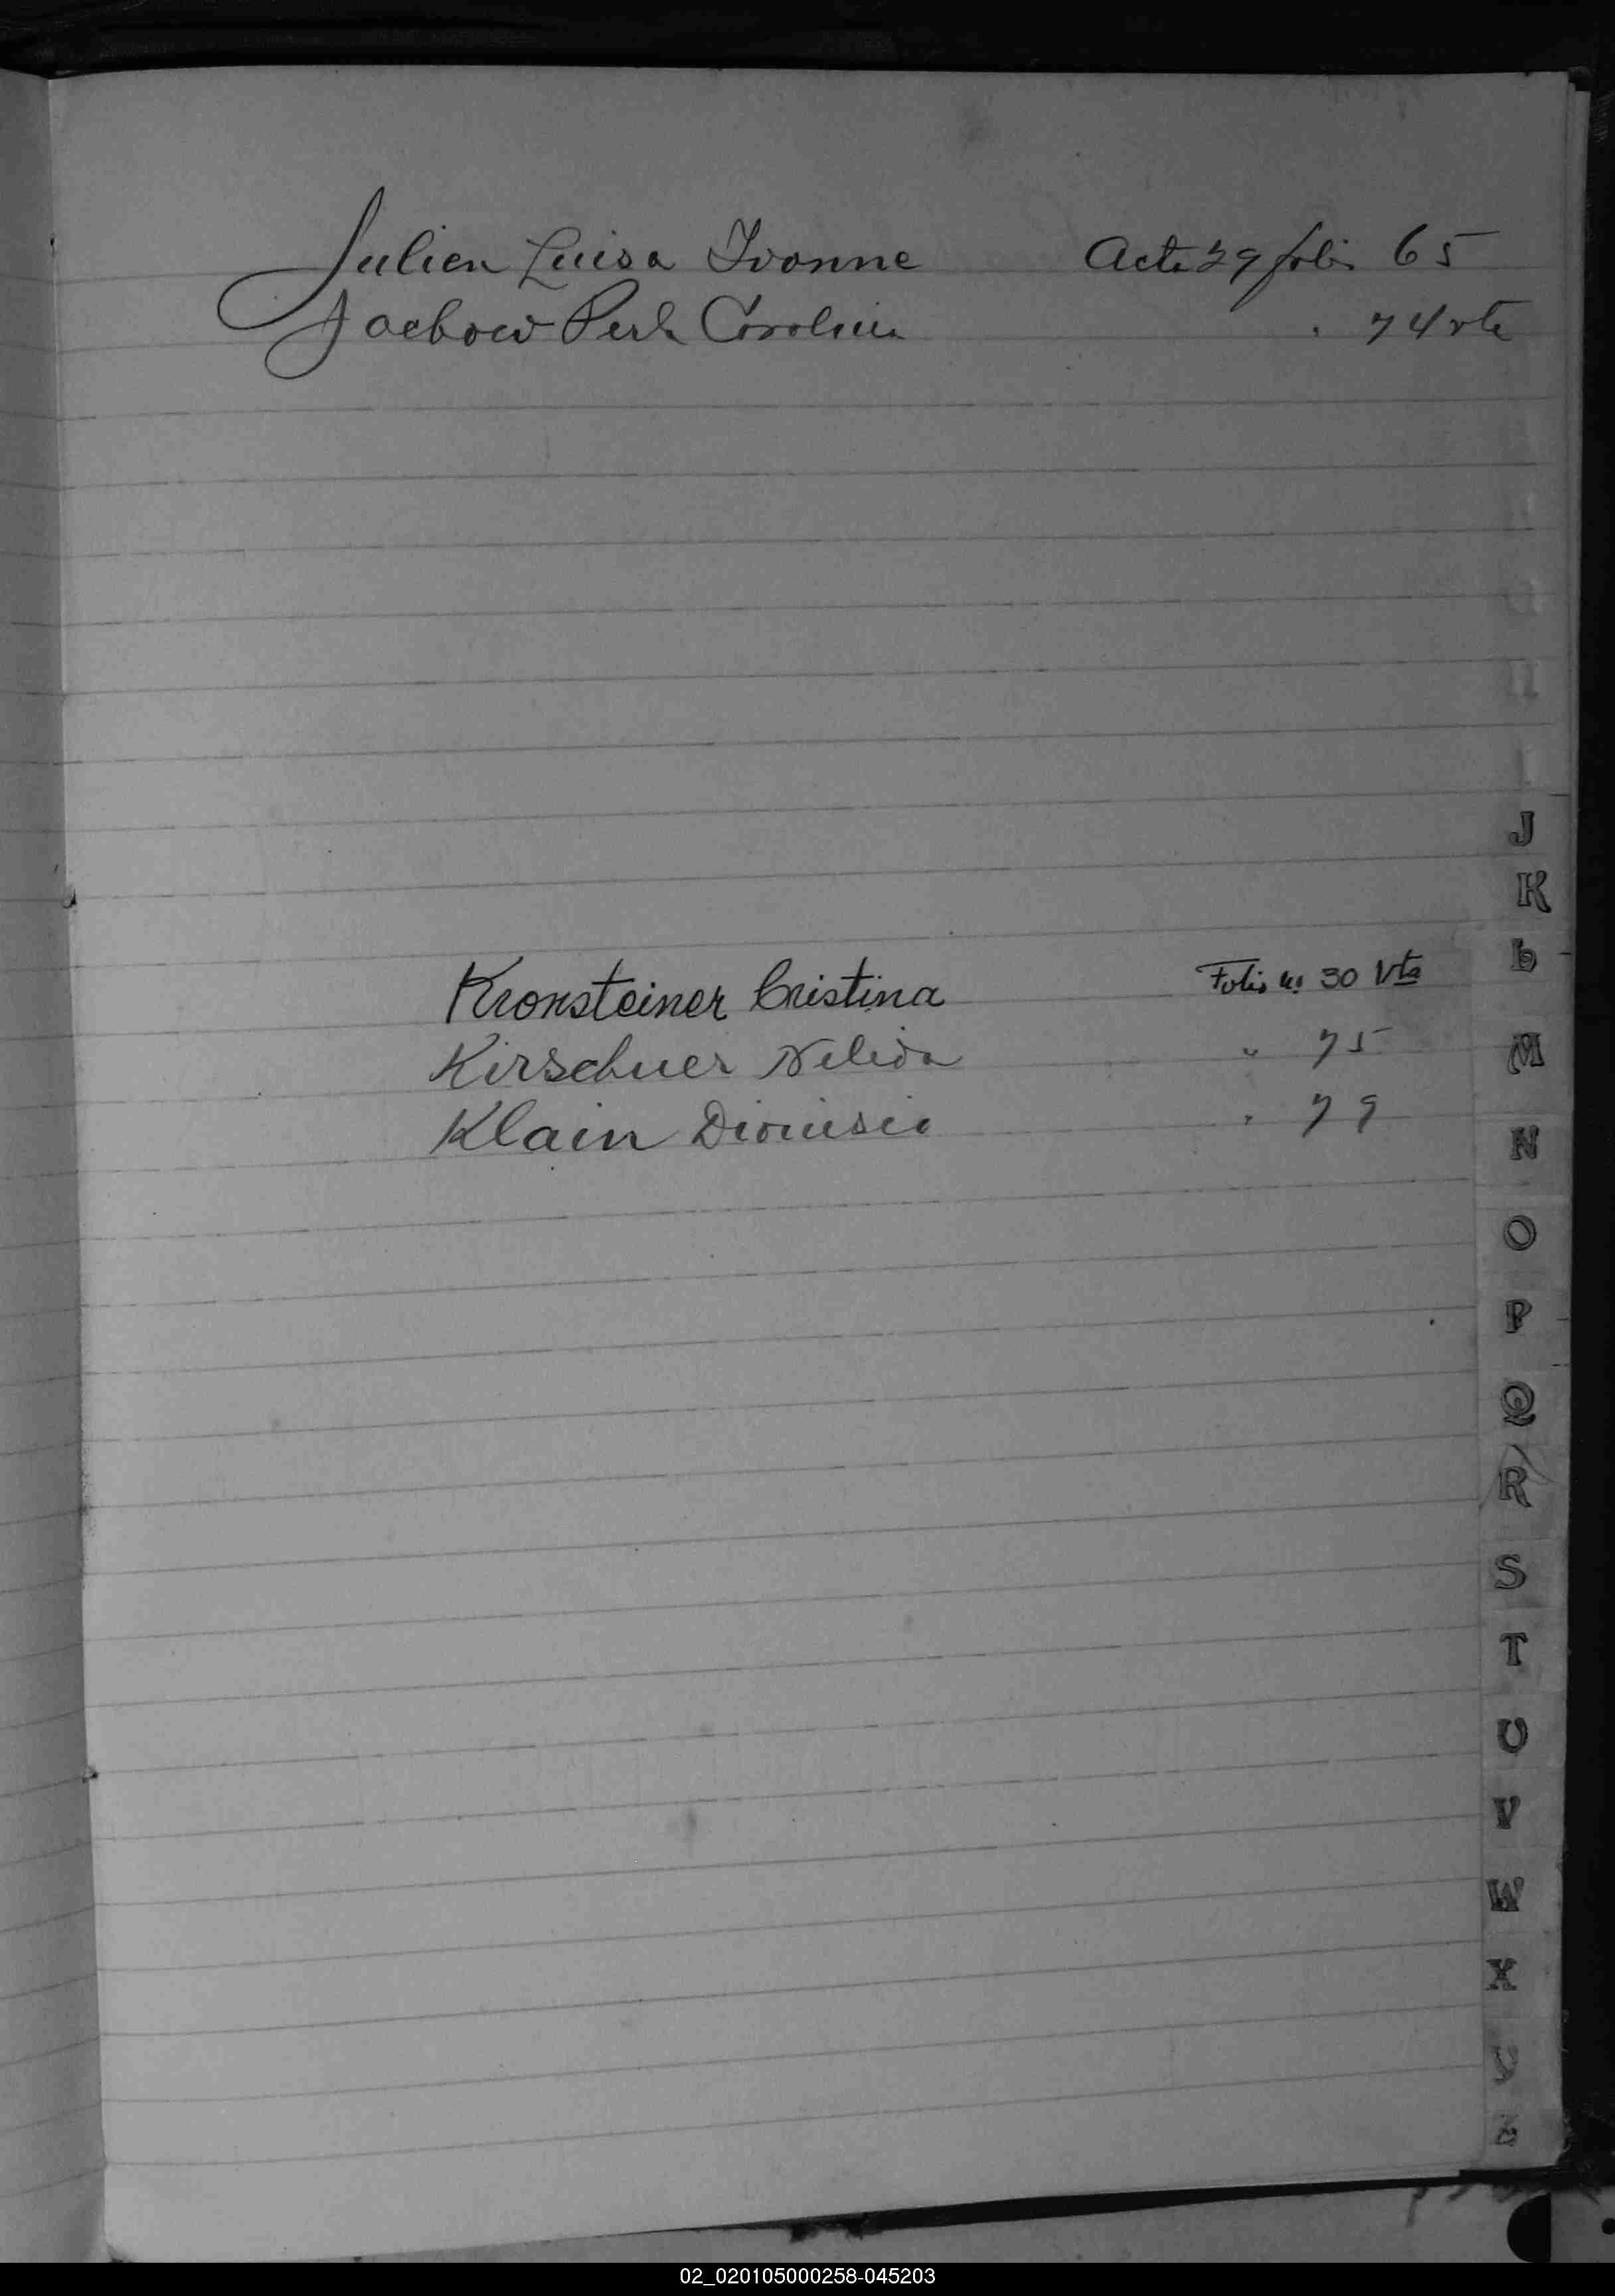 Julien Luisa Ivonne Acta 29 folio 65
Jacbow Carolina " 74 vta
J
K
L
Kronsteiner Cristina Folio nº 30 Vta
Kirschner Nelida " 75
Klain Dionisio " 79
M
N
O
P
Q
R
S
T
U
V
W
X
Y
Z
02_020105000258-045203